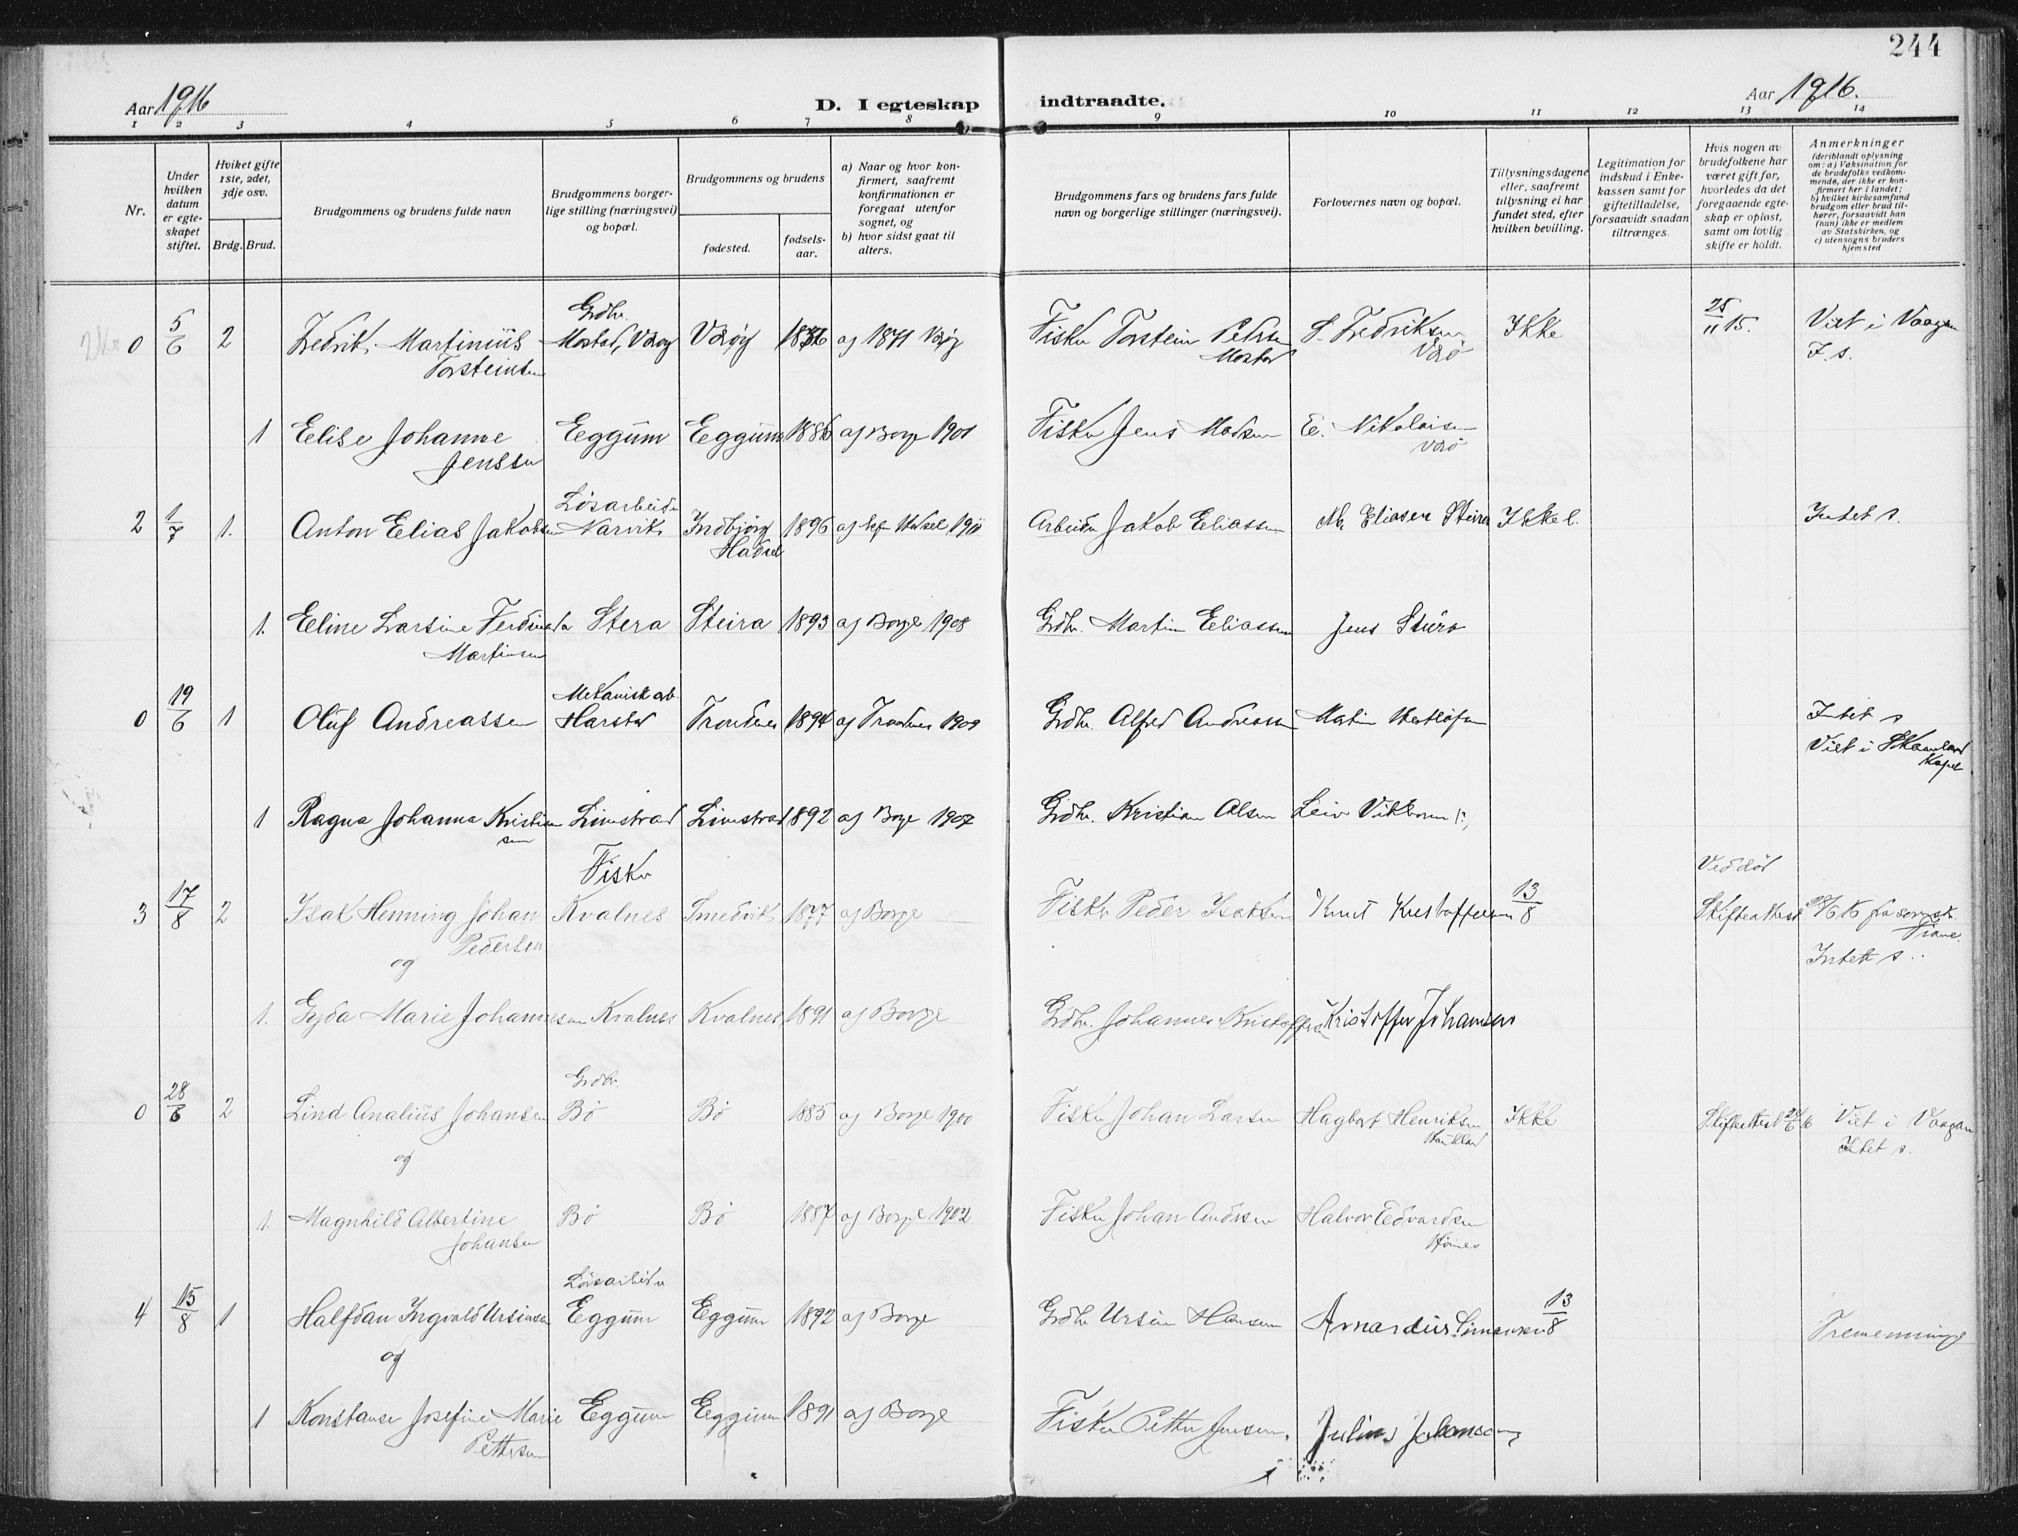 244
Aar 1916
D. I egteskap indtraadte.
Aar 1916.
1 2 3 4 5 6 7 8 9 10 11 12 13 14
Nr.
Under hvilken datum er egteskapet stiftet.
Hvilket gifte 1ste, 2det, 3dje osv.
Brdg. Brud.
Brudgommens og brudens fulde navn
Brudgommens borgerlige stilling (næringsvei) og bopæl.
Brudgommens og brudens
fødested.
fødselsaar.
a) Naar og hvor konfirmert, saafremt konfirmationen er foregaat utenfor sognet, og
b) hvor sidst gaat til alters.
Brudgommens fars og brudens fars fulde navn og borgerlige stillinger (næringsvei).
Forlovernes navn og bopæl.
Tillysningsdagene eller, saafremt tillysning ei har fundet sted, efter hvilken bevilling.
Legitimation for indskud i Enkekassen samt for giftetilladelse, forsaavidt saadan tiltrænges.
Hvis nogen av brudefolkene har været gift før, hvorledes da det foregaaende egteskap er opløst, samt om lovlig skifte er holdt.
Anmerkninger (deriblandt oplysning om: a) Vaksination for de brudefolks vedkommende, der ikke er konfirmert her i landet; b) hvilket kirkesamfund brudgom eller brud tilhører, forsaavidt han (hun) ikke er medlem av Statskirken, og c) utensogns bruders hjemsted
0 5/6 2 Fredrik Martinius Torsteinsen Grdbr. Mostad, Værøy Værøy og 1871 Værøy Fisker Torstein Peders Mostad S. Fredriksen Værø Ikke 25/11 15. Viet i Vaagan I. s.
1 Elise Johanne Jenssen Eggum Eggum 1886 og Borge 1901 Fisker Jens Madsen E. Nikolaisen Værø
2 1/7 1. Anton Elias Jakobsen Løsarbeider Narvik Hadsel 1896 og Hadsel 1911 Arbeider Jakob Eliassen M. Eliasen Steira Ikke l. Intet s.
1. Eline Larsine Ferdinanda Martinsen Stera Steira 1893 og Borge 1908 Grdbr. Martin Eliassen Jens Stura
0 19/6 1 Oluf Andreassen Mekanisk arb. Harstad Trondenes 1894 og Trondnes 1909 Grdbr. Alfred Andreassen Martin Intet s Viet i Skaanland Kapel
1 Ragna Johanna Kristiansen Limstrad Limstrad 1892 og Borge 1907 Grdbr. Kristian Olsen Leiv
3 17/8 2 Isak Henning Johan Pedersen Fisker Kvalnes Smedvik 1877 og Borge Fisker Peder Isaksen Knut Kristoffersen 13/8 Ved død Skifteattest Intet s.
og
1. Gyda Marie Johannessen Kvalnes Kvalnes 1891 og Borge Grdbr. Johannes Kristoffersen Kristoffer Johansen
0 28/6 2 Lind Analius Johansen Grdbr. Bø Bø 1885 og Borge 1900 Fisker Johan Larsen Hagbart Henriksen Ikke Skifteattest Viet i Vaagan Intet s.
og
1. Magnhild Albertine Johansen Bø Bø 1887 og Borge 1902 Fisker Johan Andrsen Halvor Edvardsen
4 15/8 1 Halfdan Ingvald Ursinsen Løsarbeider Eggum Eggum 1892 og Borge Grdbr Ursin Hansen Arnardius Simonsen 13/8 Tremenninge
og
1 Konstanse Josefine Marie Pettersen Eggum Eggum 1891 og Borge Fisker Petter Jensen. Julius Johansen